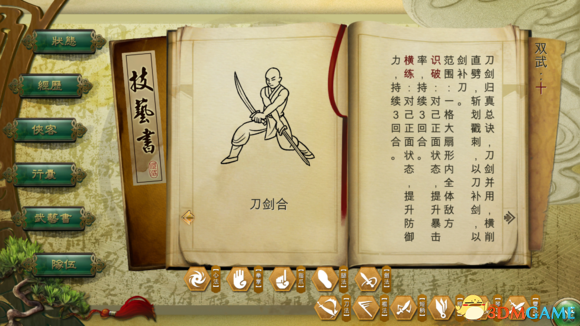 狀態
經歷
俠客
行囊
武藝書
隊伍
技藝書
刀剑合
双武：十
刀剑归真总诀，刀剑并用，横削
直劈，斩划戳刺，以刀补剑，以
剑补刀。
范围：一格大扇形内全体敌方
识破：对己正面状态，提升暴击
率，持续3回合。
横练：对己正面状态，提升防御
力，持续3回合。
3DMGAME